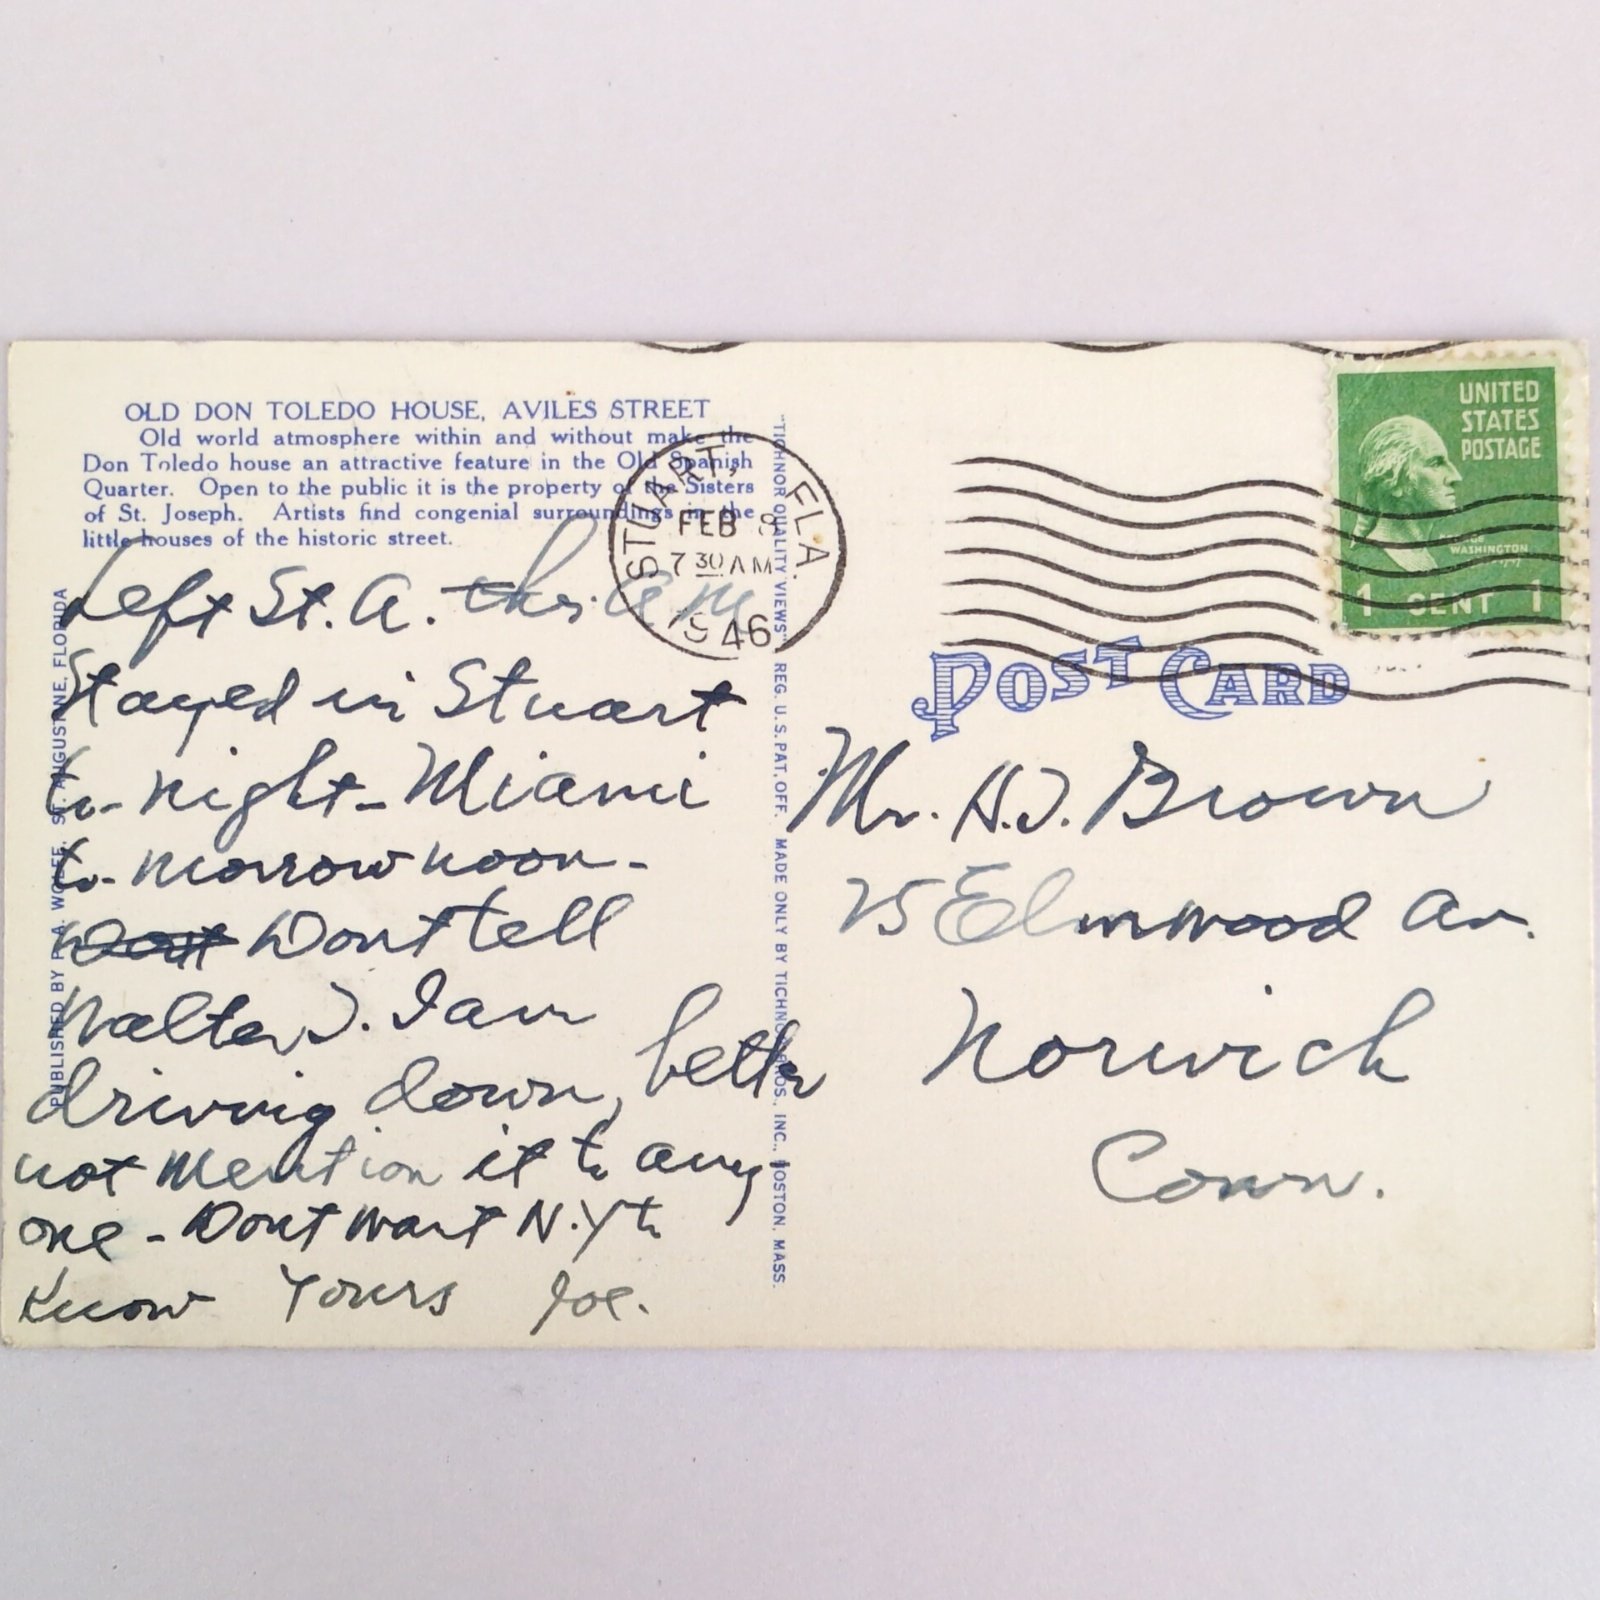 OLD DON TOLEDO HOUSE, AVILES STREET
Old world atmosphere within and without make the
Don Toledo house an attractive feature in the Old Spanish
Quarter. Open to the public it is the property of the Sisters
of St. Joseph. Artists find congenial surroundings in the
little houses of the historic street.
Left St. A. this a m
Stayed in Stuart
to-night - Miami
to-morrow noon -
Dont tell
Walter J. I am
driving down, better
not mention it to any
one - Dont want N.Y to
know Yours Joe.
PUBLISHED BY WOLFE, ST. AUGUSTINE, FLORIDA
"TICHNOR QUALITY VIEWS" REG. U.S. PAT. OFF. MADE ONLY BY TICHNOR BROS., INC., BOSTON, MASS.
STUART, FLA.
FEB 8
7 30 AM
1946
UNITED
STATES
POSTAGE
GEORGE
WASHINGTON
1 CENT 1
POST CARD
Mr. H.J. Brown
25 Elmwood Av.
Norwich
Conn.